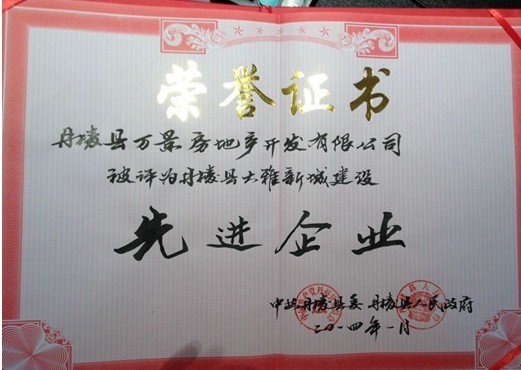 荣誉证书
丹棱县万景房地产开发有限公司
被评为丹棱县大雅新城建设
先进企业
中共丹棱县委 丹棱县人民政府
二〇一四年一月